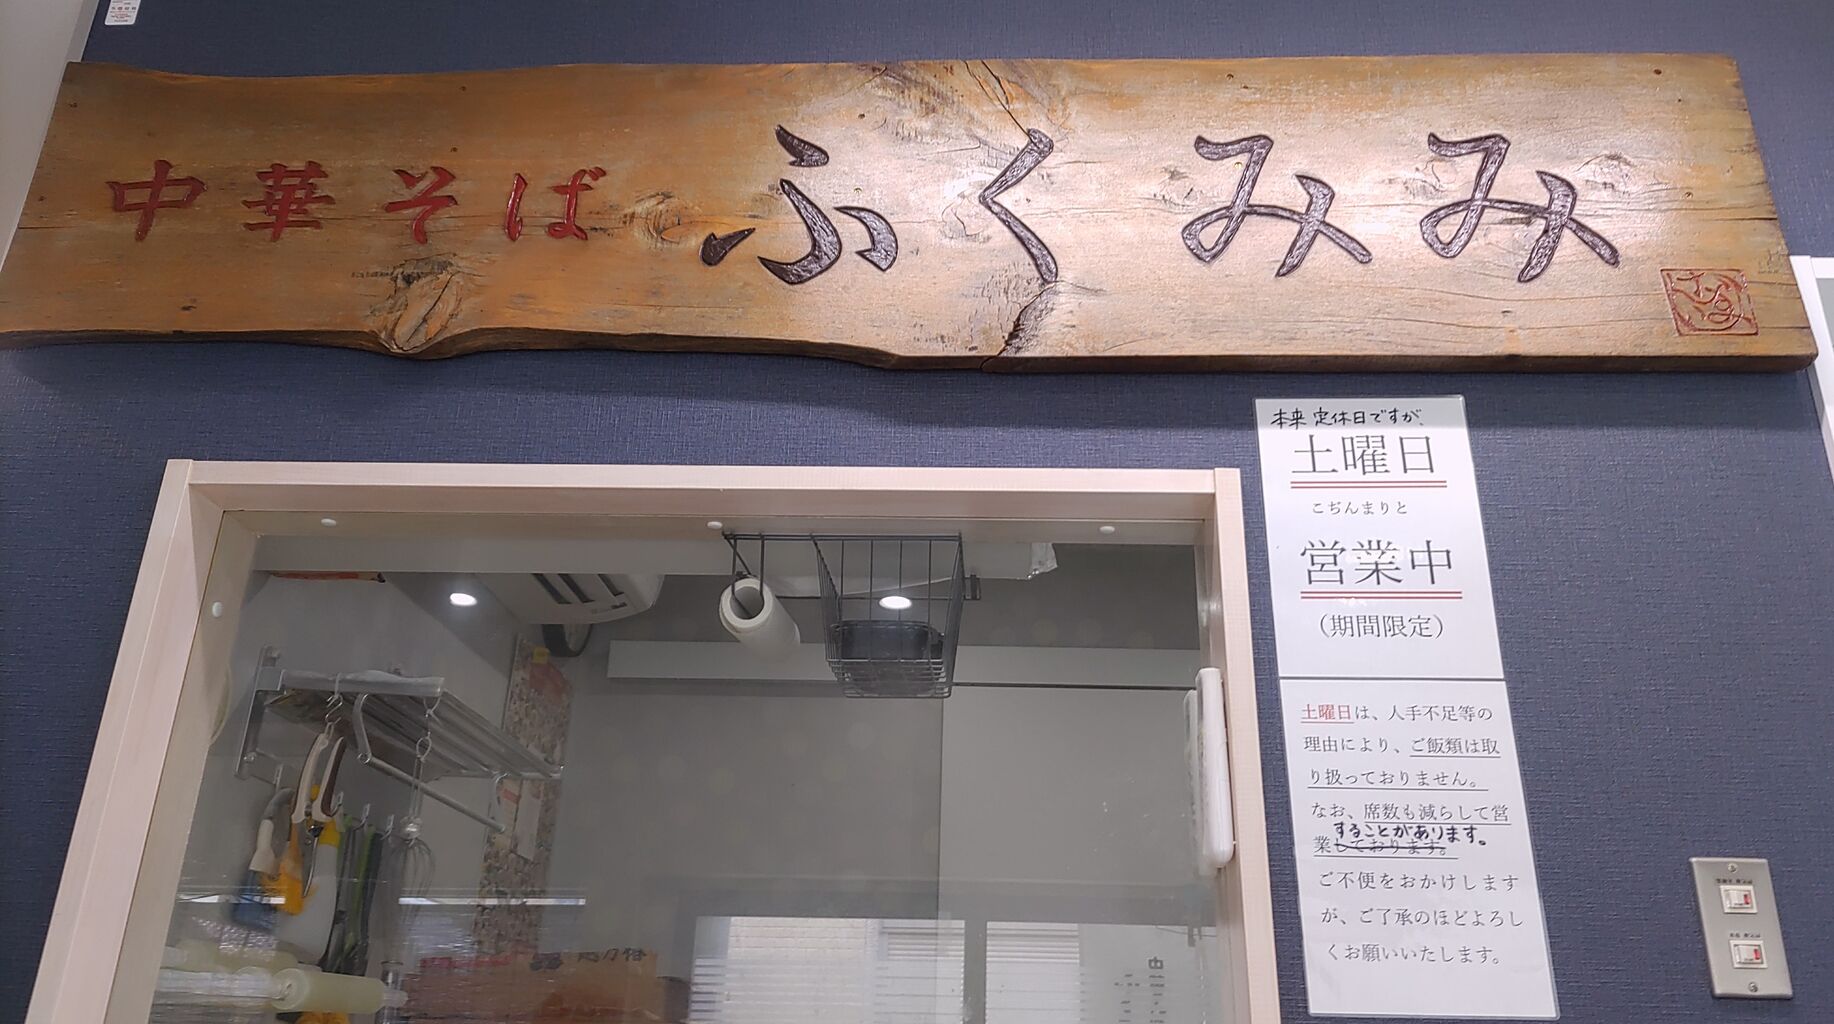 中華そば ふくみみ
本来 定休日ですが、
土曜日
こぢんまりと
営業中
（期間限定）
土曜日は、人手不足等の
理由により、ご飯類は取
り扱っておりません。
なお、席数も減らして営
することがあります。
業しております。
ご不便をおかけします
が、ご了承のほどよろし
くお願いいたします。